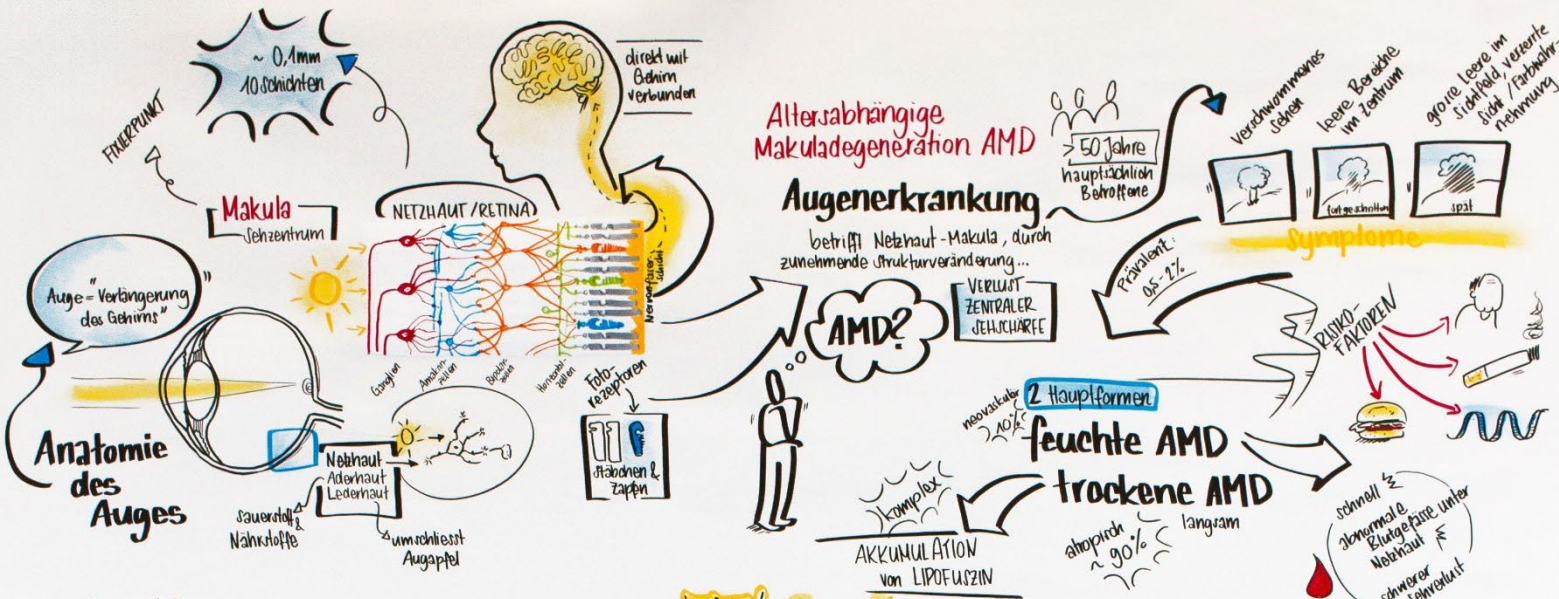 ~ 0,1mm
10 Schichten
FIXIERPUNKT
Makula
Sehzentrum
NETZHAUT/RETINA
direkt mit
Gehirn
verbunden
"Auge = Verlängerung
des Gehirns"
Anatomie
des
Auges
Netzhaut
Aderhaut
Lederhaut
Sauerstoff &
Nährstoffe
umschliesst
Augapfel
Ganglien
Amakrin-
zellen
Bipolar-
zellen
Horizontal-
zellen
Foto-
rezeptoren
Nervenfaser-
schicht
Stäbchen &
Zapfen
Altersabhängige
Makuladegeneration AMD
Augenerkrankung
betrifft Netzhaut-Makula, durch
zunehmende Strukturveränderung...
AMD?
VERLUST
ZENTRALER
SEHSCHÄRFE
> 50 Jahre
hauptsächlich
Betroffene
verschwommenes
sehen
leere Bereiche
im Zentrum
grosse leere im
Sichtfeld, verzerrte
Sicht / Farbwahr-
nehmung
fortgeschritten
spät
Symptome
Prävalent:
0,5-2%
RISIKO-
FAKTOREN
2 Hauptformen
neovaskulär
10%
feuchte AMD
trockene AMD
langsam
atropisch
~ 90%
komplex
AKKUMULATION
von LIPOFUSZIN
schnell
abnormale
Blutgefässe unter
Netzhaut
schwerer
Sehverlust